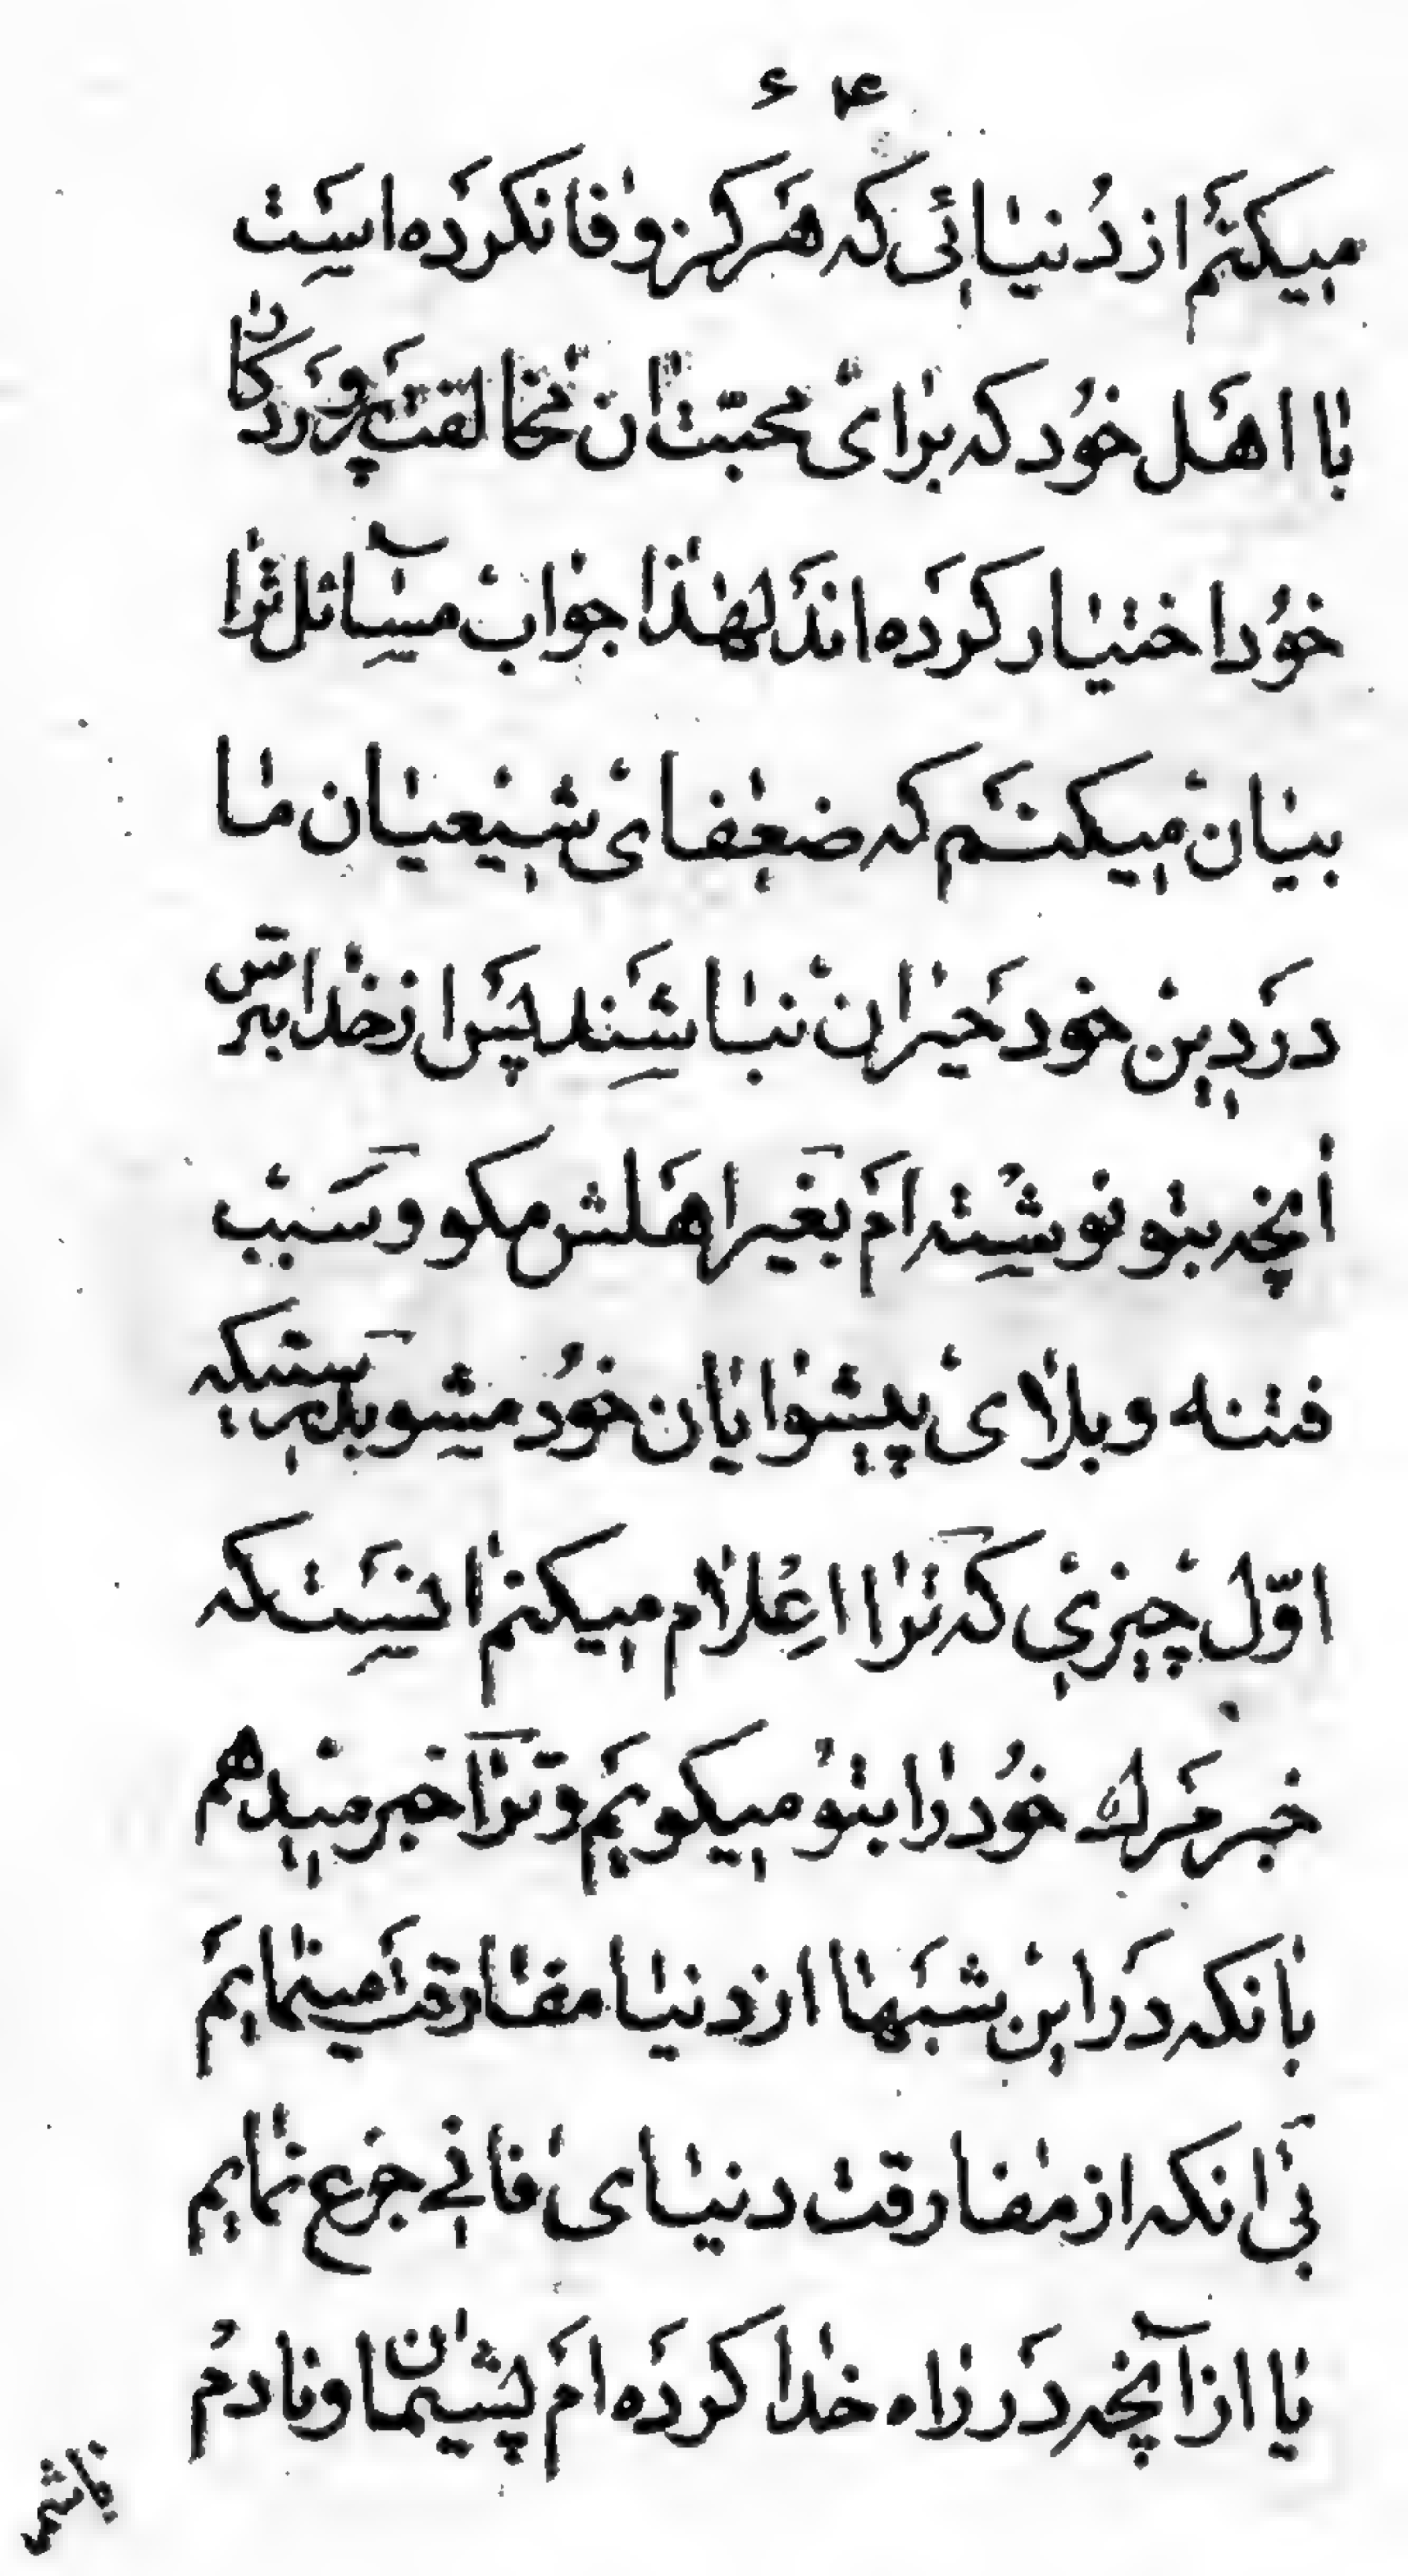 ۶۴
میکنم از دُنیائی که هَرکز وفا نکرَده است
با اهَل خوُد که برای محبّتان مخالفت پَروَردکان
خوُد اختیار کرَده اندَ لهذا جواب مسآئل ترا
بیان میکنَم که ضعفای شیعیان ما
درَ دین خود حیَران نباشَند پسَ از خدا بترس
آنچه بتو نوشُته امَ بغیر اهَلش مکو و سَبب
فتنه و بلای پیشوایان خوُد مشو بدرستیکه
اوّل چیزی که ترا اعِلام میکنم اینسَت که
خبر مَرک خوُد را بتوُ میکویَم و ترا خبر میدهم
بانکه درَ این شبَها از دنیا مفارقتَ مینمایَم
بی انکه از مفارقت دنیای فانی جزع نمایم
یا از آنچه درَ راه خدا کرَده امَ پشیمان و نادمُ
باشم